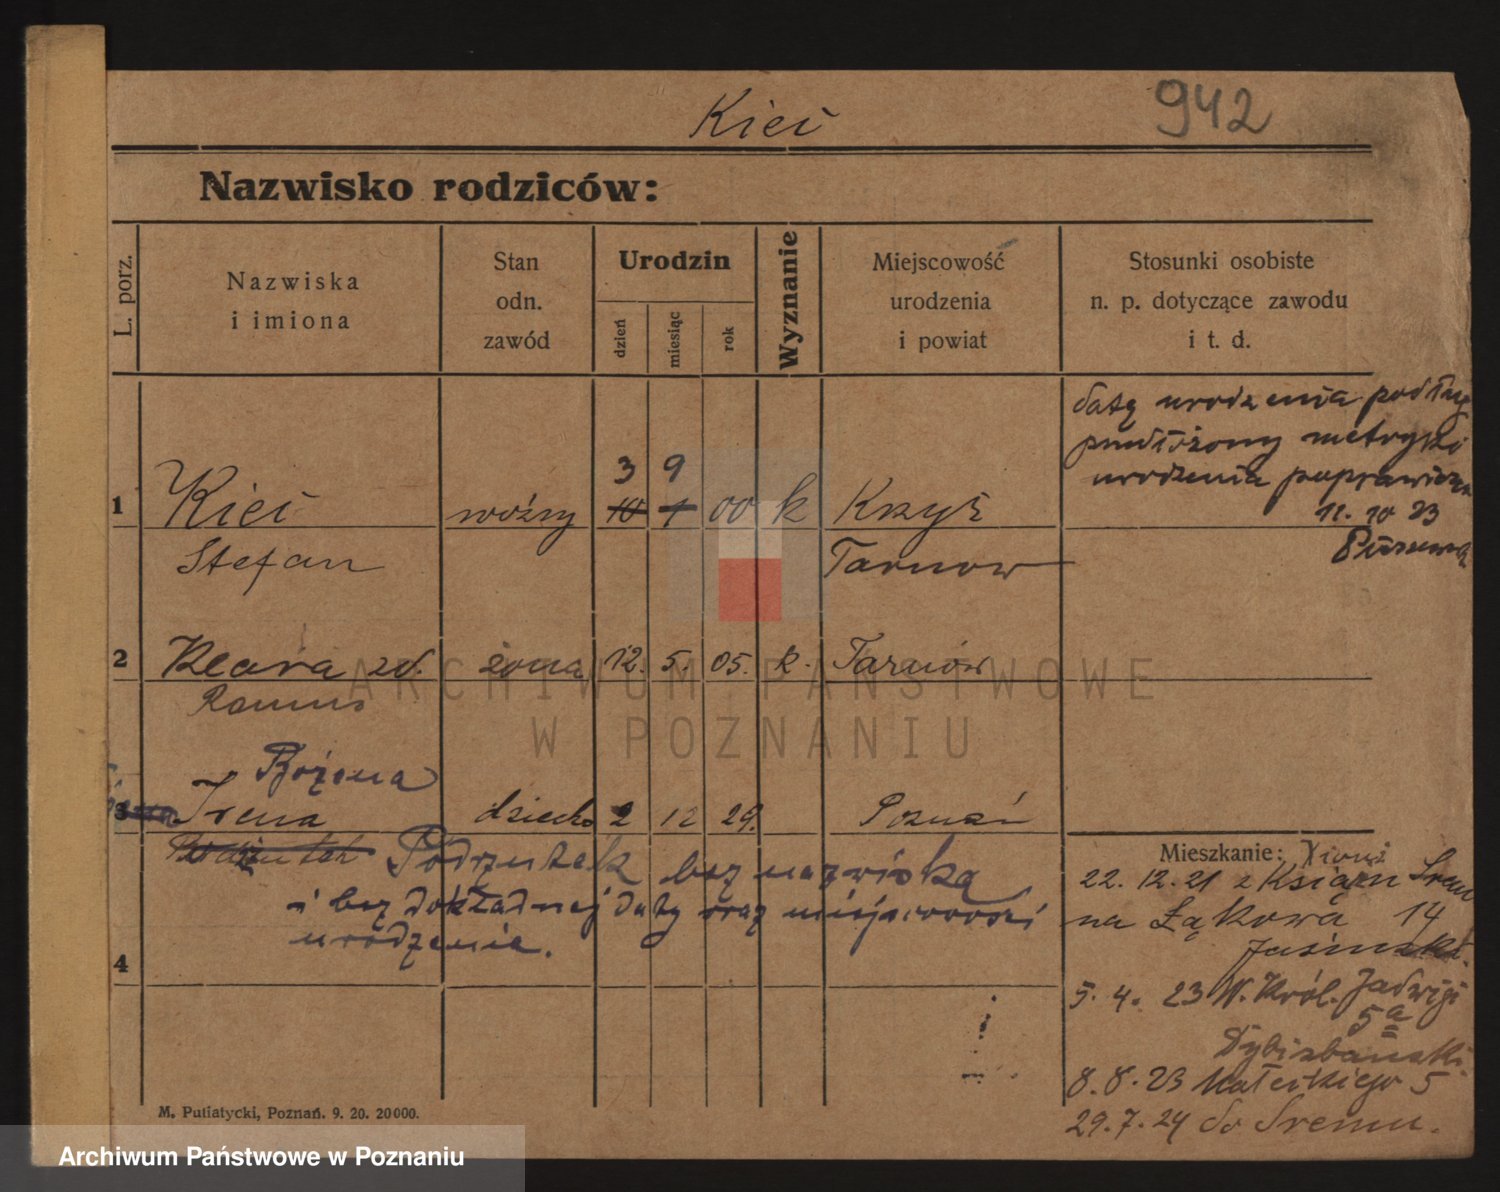 Kieć
942
Nazwisko rodziców:
L. porz.
Nazwiska
i imiona
Stan
odn.
zawód
Urodzin
dzień
miesiąc
rok
Wyznanie
Miejscowość
urodzenia
i powiat
Stosunki osobiste
n. p. dotyczące zawodu
i t. d.
datę urodzenia podług
przedłożony metryki
urodzenia poprawiono
12. 10 23
3 9
1 Kieć woźny 10 1 00 k Krzyż
Stefan Tarnow
2 Klara zd. żona 12. 5. 05. k. Tarnów
Ramus
Bożena
3 Irena dziecko 2 12 29. Poznań
Podrzutek Podrzutek bez nazwiska
i bez dokładnej daty oraz miejscowości
urodzenia.
4
Mieszkanie:
22. 12. 21 z Książa Śrem
na Łąkowa 14
5. 4. 23 W. Król. Jadwigi
5a
8. 8. 23 Małeckiego 5
29. 7. 24 do Śremu.
M. Putiatycki, Poznań. 9. 20. 20000.
ARCHIWUM PAŃSTWOWE
W POZNANIU
Archiwum Państwowe w Poznaniu